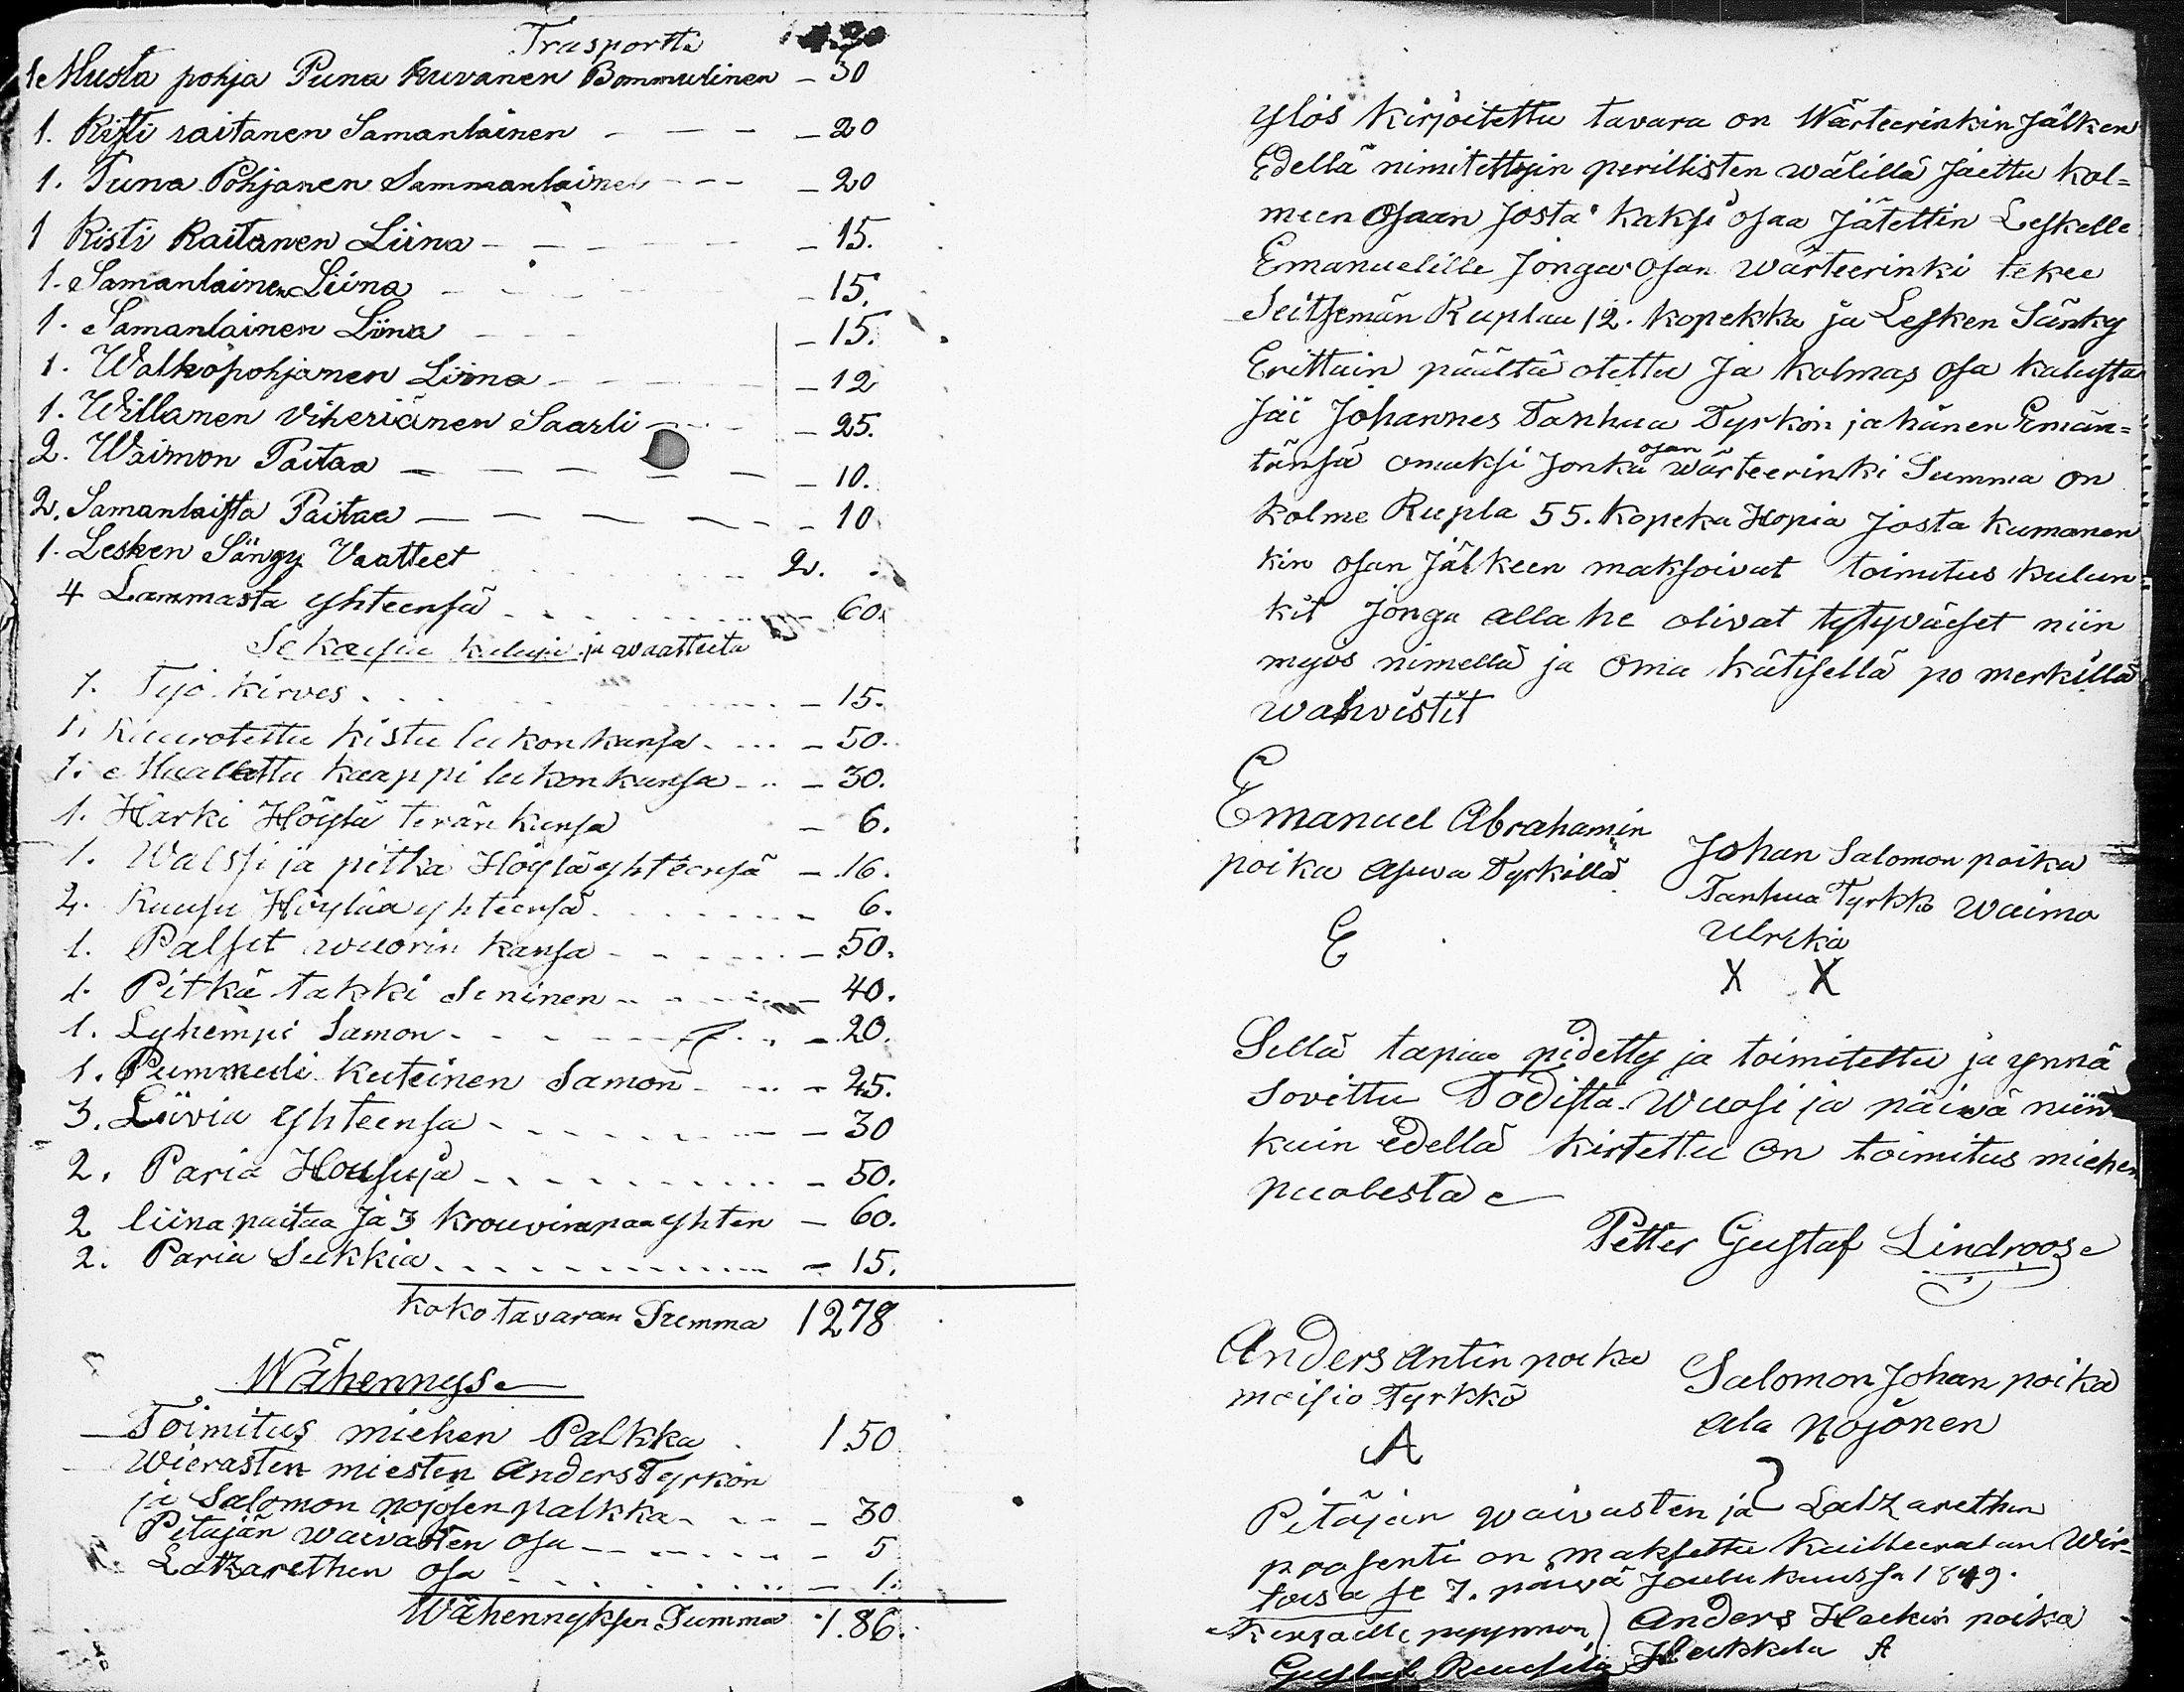 Trasportti
1. Musta pohja Puna kuvanen Bommulinen – 30
1. Risti raitanen Samanlainen – – – – 20
1. Puna Pohjanen Sammanlainen – – – – 20
1 Risti Raitanen Liina – – – – – 15.
1. Samanlainen Liina – – – – 15.
1. Samanlainen Liina – – – – 15.
1. Walkopohjanen Liina – – – – 12
1. Willanen viheriänen Saarli – – – 25.
2. Waimon Paitaa – – – – – 10.
2. Samanlaista Paitaa – – – – – 10
1. Lesken Sängy Vaatteet 2.
4 Lammasta yhteensä – 60.
Sekaisia kaluja ja waatteita
1. Työ kirves – 15.
1. Kuurotettu kistu lukon kansa – 50.
1. Maalattu kaappi lukon kansa – 30.
1. Härki Höylä terän kansa – 6.
1. Walssi ja pitkä Höylä yhteensä – 16.
2. Ruusu Höylää yhteensä – 6.
1. Palset wuorin kansa – 50.
1. Pitkä takki Sininen – 40.
1. Lyhempi Samon – 20.
1. Pummuli kuteinen Samon – 25.
3. Liivia yhteensa – 30
2. Paria Housuja – 50.
2 liina paitaa ja 3 krouvimpaa yhten – 60.
2. Paria Sukkia – 15.
koko tavaran Summa 1278
Wähennys
Toimitus miehen Palkka 1.50
Wierasten miesten Anders Tyrkön
ja Salomon nojosen palkka – 30
Pitäjän waivasten osa – 5
Latzarethun osa – 1.
Wähennyksen Summa 1.86.
ylös kirjoitettu tavara on Wärteerinkin jälken
Edellä nimitettyin perillisten wälillä jaettu kol=
meen osaan josta kaksi osaa jätettin Leskelle
Emanuelille jonga osan wärteerinki tekee
Seitsemän Ruplaa 12. kopekka ja Lesken Sänky
Erittäin päältä otettu ja kolmas osa kalusta
jäi Johannes Tanhua Tyrkön ja hänen Emän=
tänsä omaksi jonka osan wärteerinki Summa on
kolme Rupla 55. kopeka Hopia josta kumanen
kin osan jälkeen maksoivat toimitus kulun=
kit jonga alla he olivat tytyväiset niin
myös nimellä ja oma kätisellä po merkillä
wahvistit
Emanuel Abrahamin
poika asuva Tyrkillä
E
Johan Salomon poika
Tanhua Tyrkkö waimo
Ulrika
X X
Sillä tapaa pidetty ja toimitettu ja ynnä
sovittu Todista. Wuosi ja päivä niin
kuin edellä kirtettu on toimitus miehen
puolesta
Petter Gustaf Lindroos
Anders Antin poika
maisio Tyrkkö
A
Salomon Johan poika
ala Nojonen
Pitäjän waivasten ja Latzarethun
prosenti on maksettu Wir=
toisa se 7. päivä Joulu kuussa 1849.
Anders Heikin poika
Gustaf Heikkila A